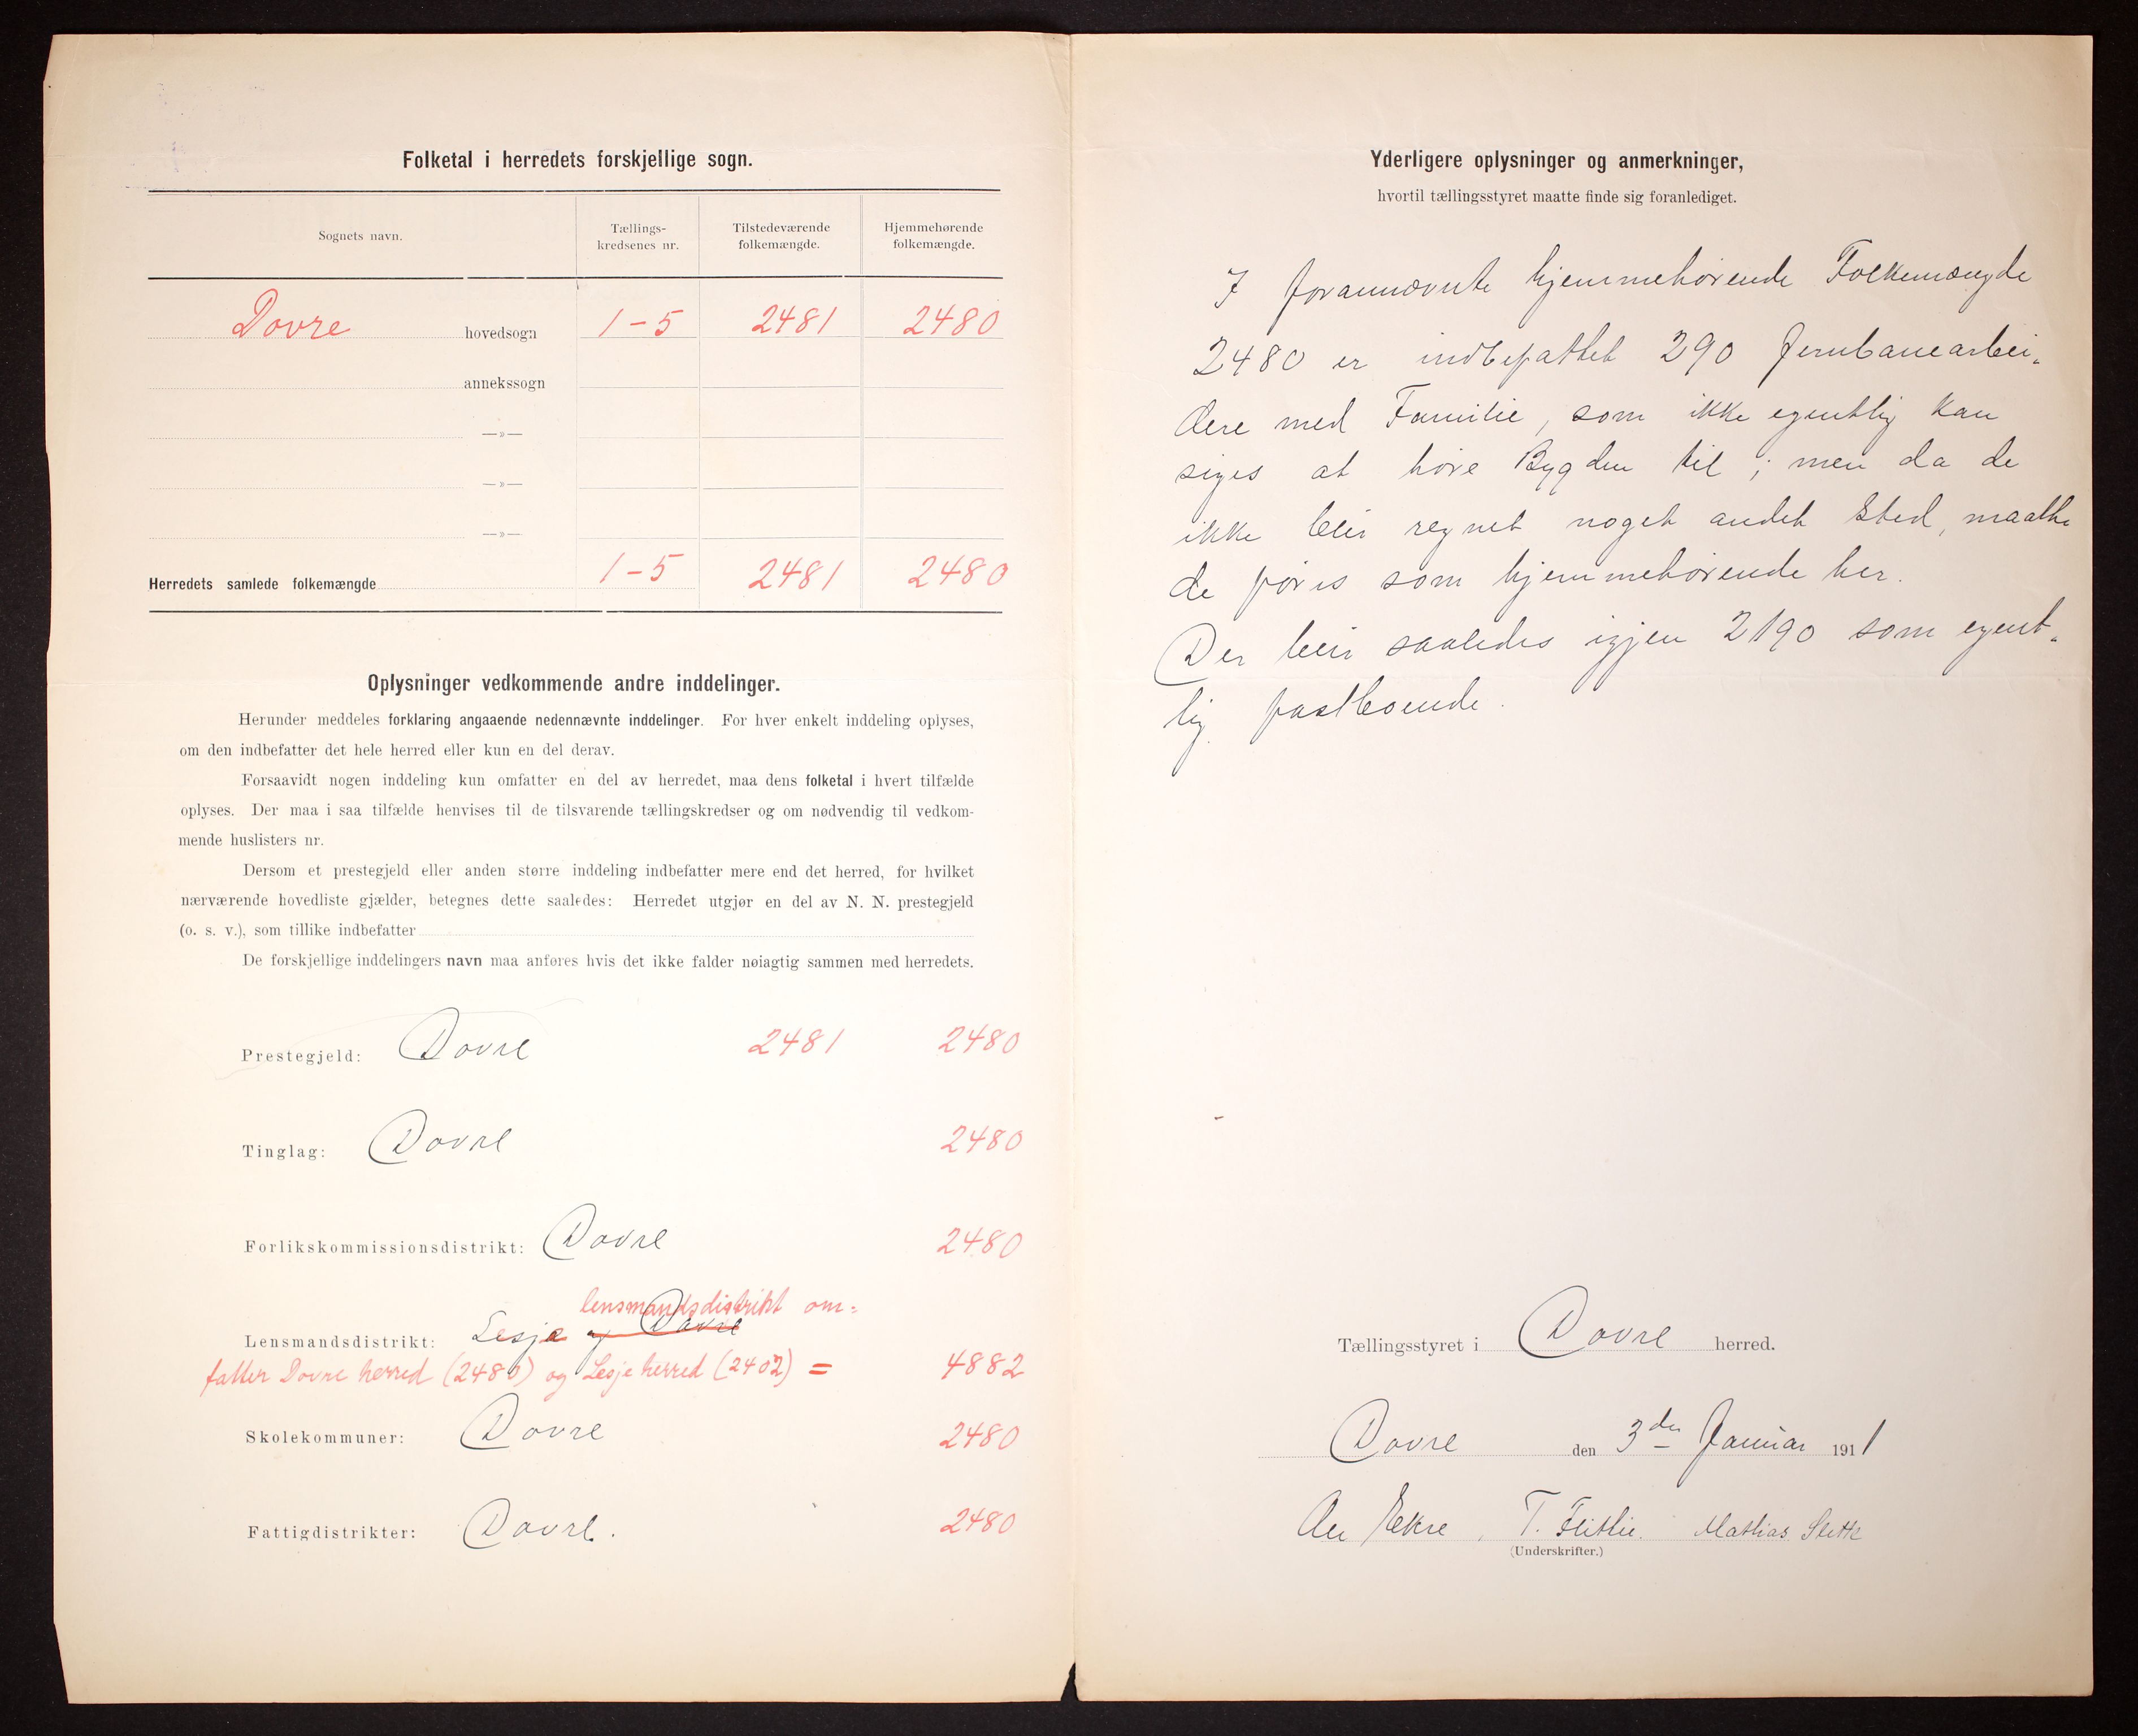 Folketal i herredets forskjellige sogn.
Sognets navn.
Tællings-
kredsenes nr.
Tilstedeværende
folkemængde.
Hjemmehørende
folkemængde.
Dovre hovedsogn 1-5 2481 2480
annekssogn
—»—
—»—
—»—
Herredets samlede folkemængde 1-5 2481 2480
Oplysninger vedkommende andre inddelinger.
Herunder meddeles forklaring angaaende nedennævnte inddelinger. For hver enkelt inddeling oplyses,
om den indbefatter det hele herred eller kun en del derav.
Forsaavidt nogen inddeling kun omfatter en del av herredet, maa dens folketal i hvert tilfælde
oplyses. Der maa i saa tilfælde henvises til de tilsvarende tællingskredser og om nødvendig til vedkom-
mende huslisters nr.
Dersom et prestegjeld eller anden større inddeling indbefatter mere end det herred, for hvilket
nærværende hovedliste gjælder, betegnes dette saaledes: Herredet utgjør en del av N. N. prestegjeld
(o. s. v.), som tillike indbefatter
De forskjellige inddelingers navn maa anføres hvis det ikke falder nøiagtig sammen med herredets.
Prestegjeld: Dovre 2481 2480
Tinglag: Dovre 2480
Forlikskommissionsdistrikt: Dovre 2480
lensmandsdistrikt om=
Lensmandsdistrikt: Lesja og Dovre
fatter Dovre herred (2480) og Lesje herred (2402) = 4882
Skolekommuner: Dovre 2480
Fattigdistrikter: Dovre. 2480
Yderligere oplysninger og anmerkninger,
hvortil tællingsstyret maatte finde sig foranlediget.
I forannævnte hjemmehørende Folkemængde
2480 er indbefattet 290 Jernbanearbei-
dere med Familie, som ikke egentlig kan
siges at høre Bygden til; men da de
ikke blir regnet noget andet Sted, maatte
de føres som hjemmehørende her.
Der blir saaledes igjen 2190 som egent-
lig fastboende.
Tællingsstyret i Dovre herred.
Dovre den 3de Januar 1911
Ekre, T. Flittie. Mathias Slette
(Underskrifter.)